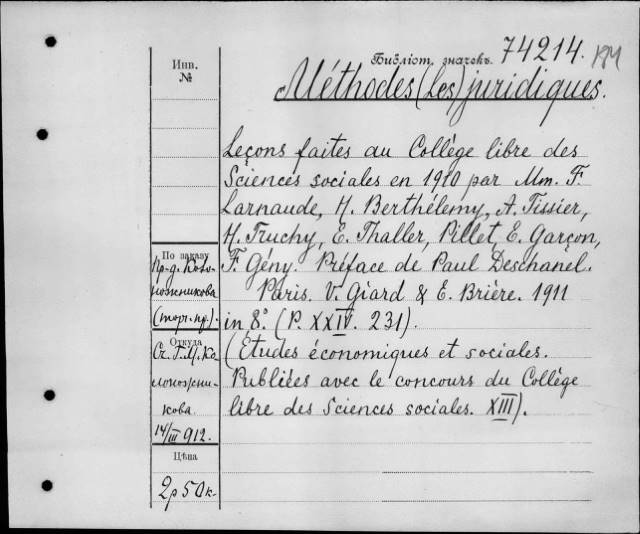 Библіот. значекъ. 74214.
Méthodes (Les) juridiques.
Инв.
№
Leçons faites au Collège libre des
Sciences sociales en 1910 par Mm. F.
Larnaude, H. Berthélemy, A. Tissier,
H. Truchy, E. Thaller, Pillet, E. Garçon,
F. Gény. Préface de Paul Deschanel.
Paris. V. Giard & E. Brière. 1911
in 8°. (P. XXIV. 231).
(Études économiques et sociales.
Publiées avec le concours du Collège
libre des Sciences sociales. XIII).
По заказу
Пр-д. Коло-
ножникова
(торг. пр.).
Откуда
Сч. Г. М. Ко
лоножни-
кова.
14/III 912.
Цѣна
2р 50к-